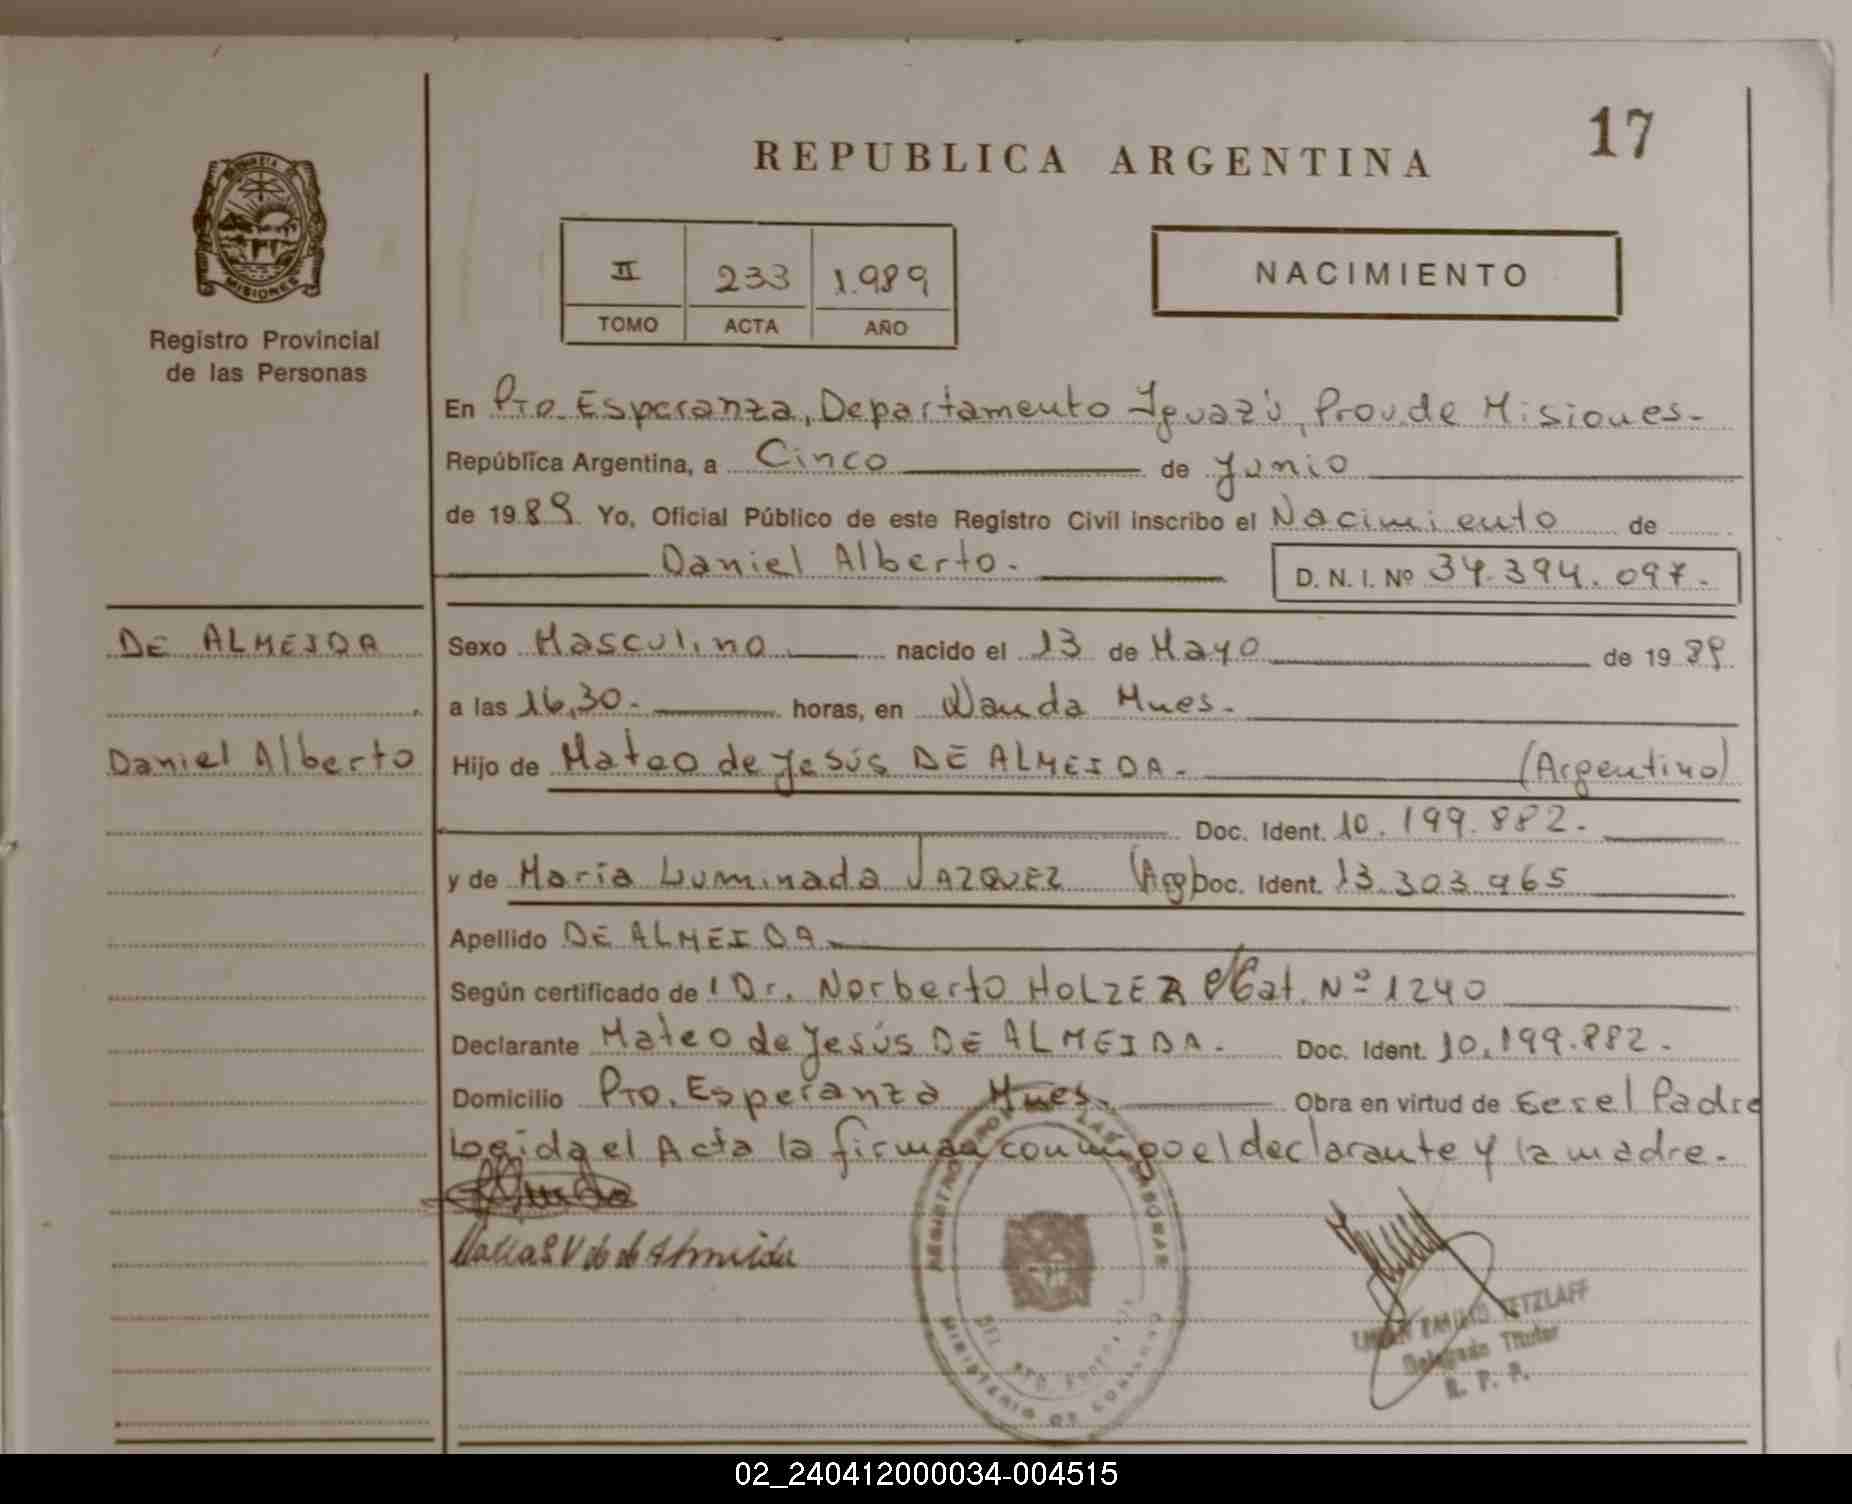 17
REPUBLICA ARGENTINA
MISIONES
Registro Provincial
de las Personas
II 233 1.989
TOMO ACTA AÑO
NACIMIENTO
En Pto. Esperanza, Departamento Iguazú, Prov. de Misiones.
República Argentina, a Cinco de Junio
de 1989 Yo, Oficial Público de este Registro Civil inscribo el Nacimiento de
Daniel Alberto.
D. N. I. Nº 34.394.097.
DE ALMEIDA
Sexo Masculino nacido el 13 de Mayo de 1989
a las 16,30. horas, en Wanda Mnes.
Daniel Alberto
Hijo de Mateo de Jesús DE ALMEIDA. (Argentino)
Doc. Ident. 10.199.882.
y de María Luminada VAZQUEZ (Arg) Doc. Ident. 13.303.965
Apellido DE ALMEIDA
Según certificado de Dr. Norberto HOLZER Mat. Nº 1240
Declarante Mateo de Jesús DE ALMEIDA. Doc. Ident. 10.199.882.
Domicilio Pto. Esperanza Mnes. Obra en virtud de Ser el Padre
Leida el Acta la firman conmigo el declarante y la madre.
REGISTRO LAS PERSONAS
MINISTERIO DE GOBIERNO
EMILIO TETZLAFF
Delegado Titular
R. P. P.
02_240412000034-004515